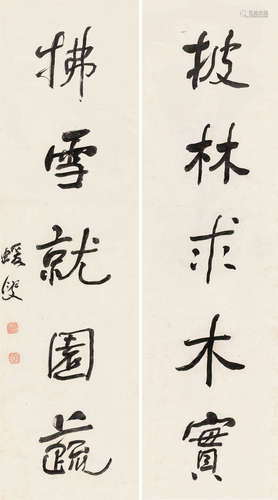 披林求木實
拂雪就園蔬
蝯叟